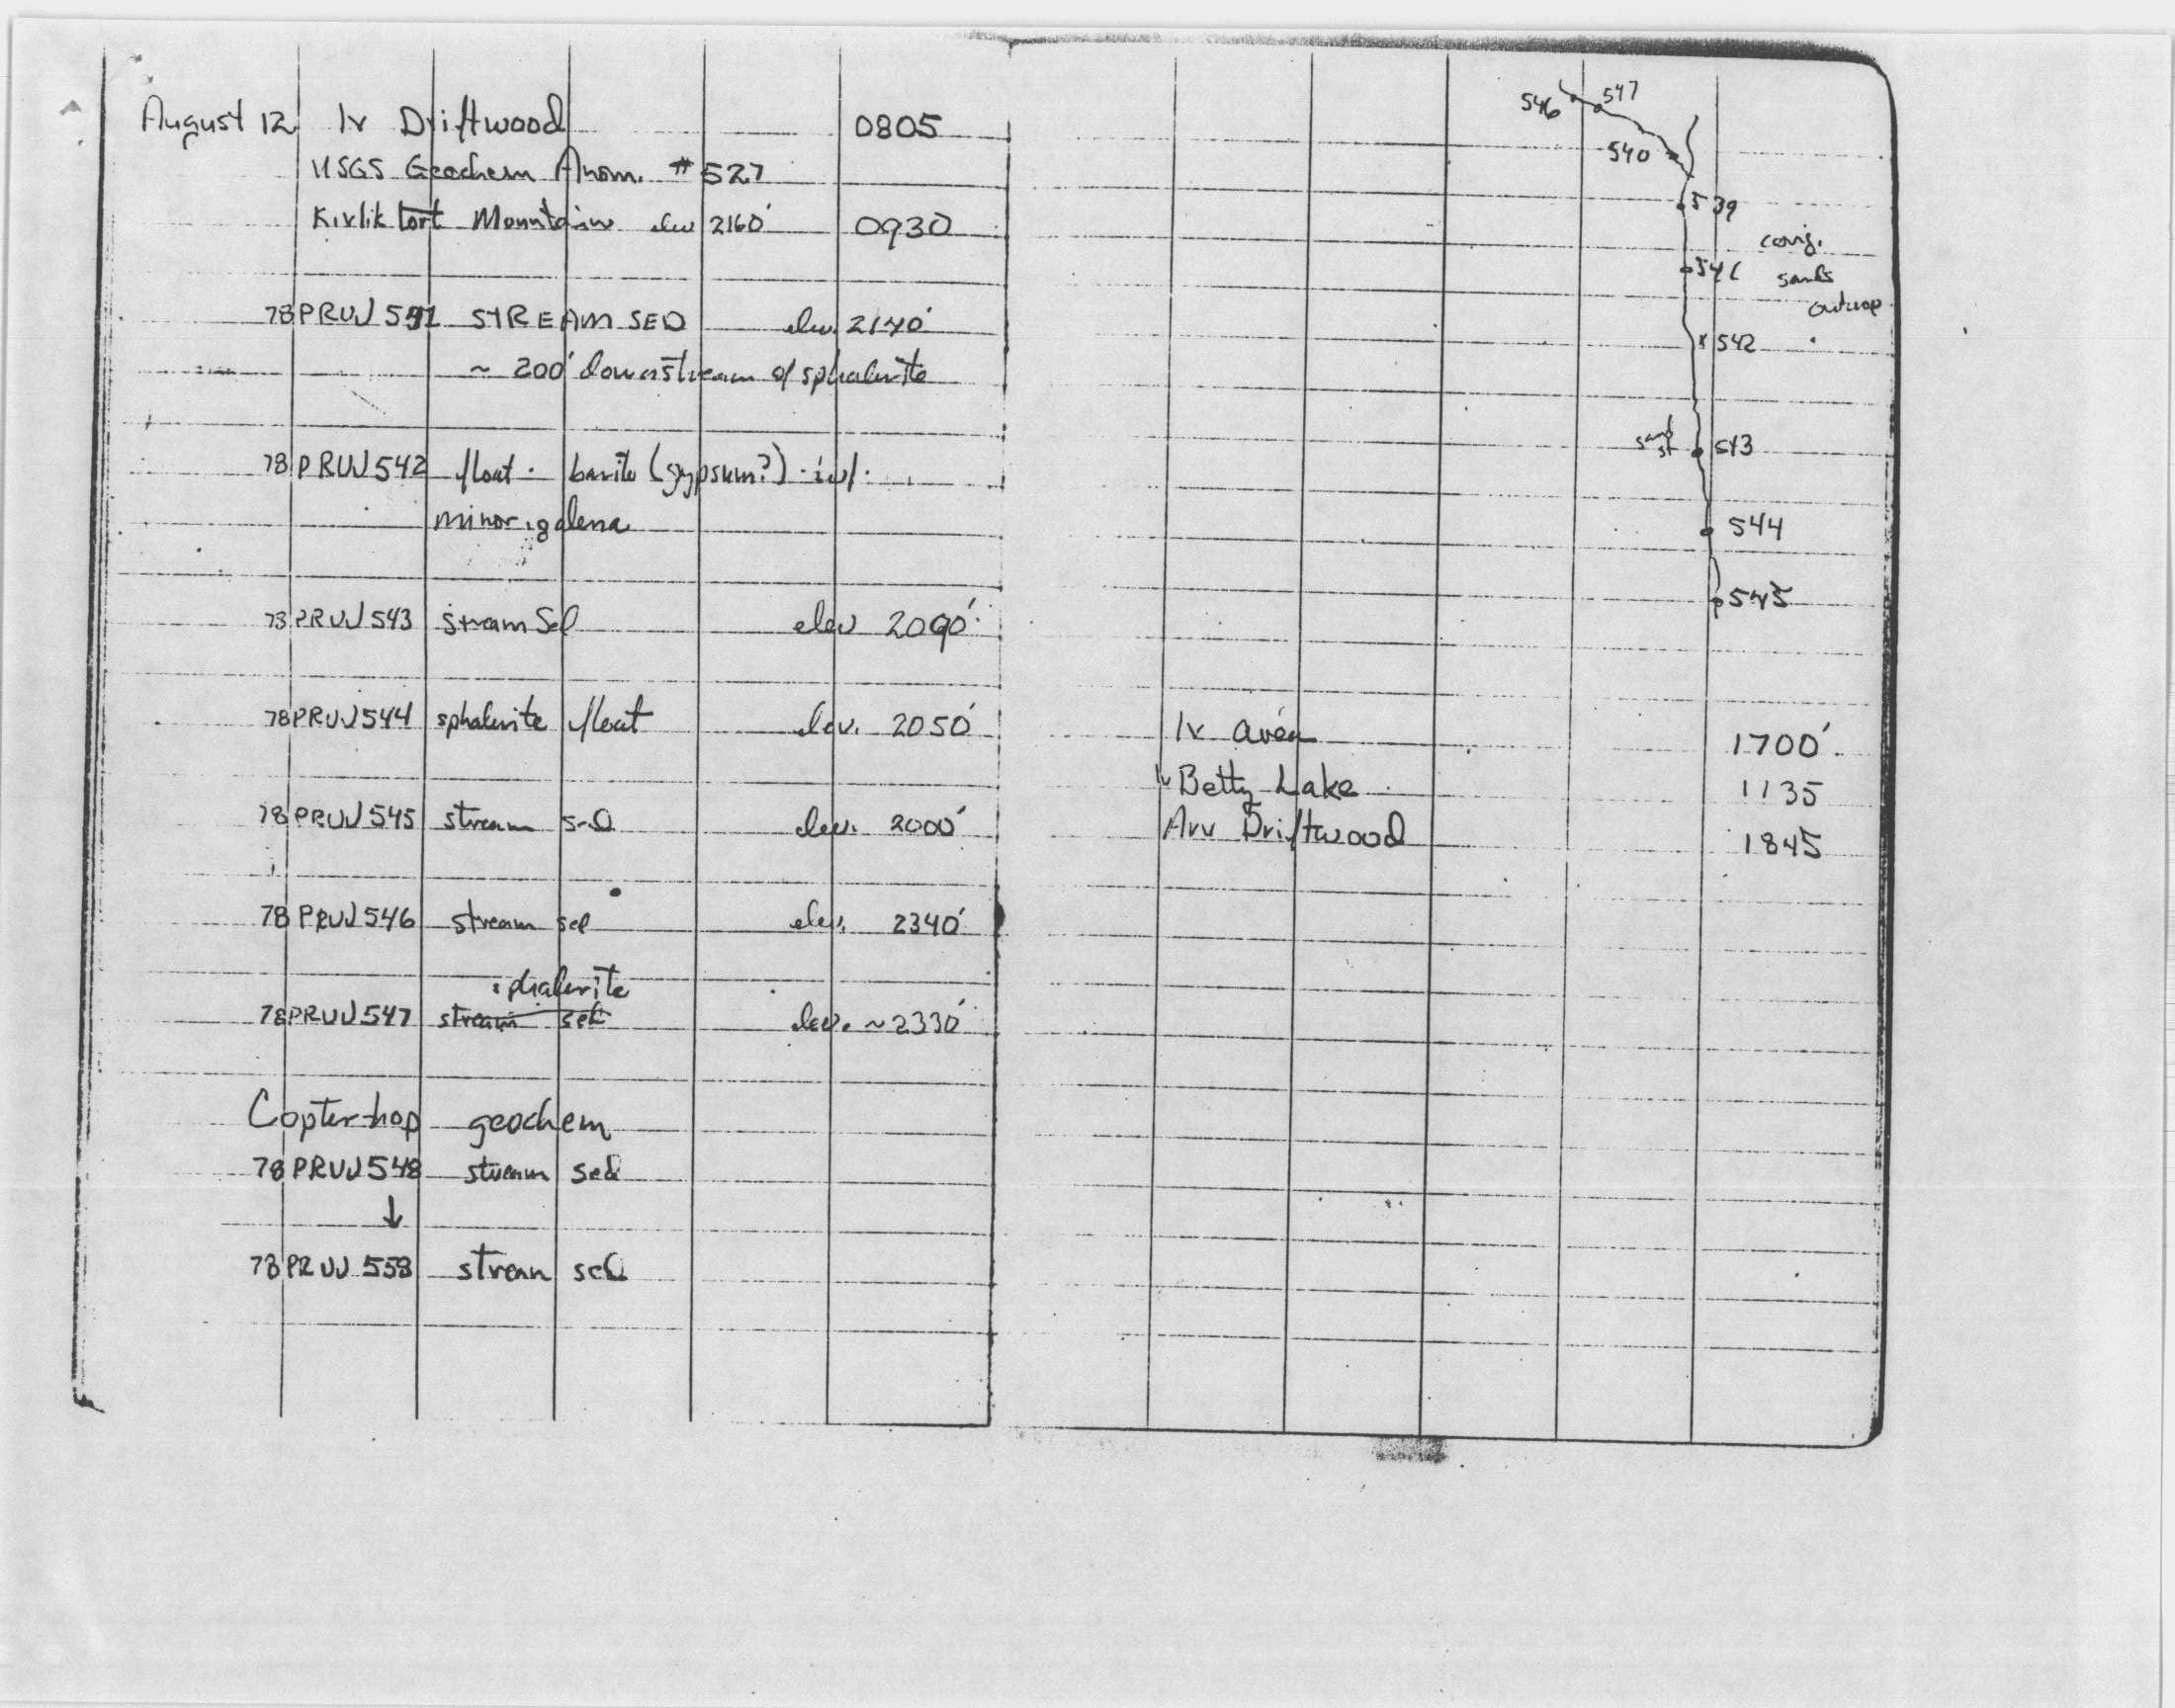 August 12 lv Driftwood 0805
USGS Geochem Anom. #527
Kivliktort Mountain elev 2160' 0930
78PRUJ541 STREAM SED elev. 2140'
~ 200' downstream of sphalerite
78PRUJ542 float - barite (gypsum?) - w/
minor galena
78PRUJ543 stream Sed elev 2090'
78PRUJ544 sphalerite float elev. 2050'
78PRUJ545 stream sed elev. 2000'
78PRUJ546 stream sed elev. 2340'
sphalerite
78PRUJ547 stream sed elev. ~2330'
Copter-hop geochem
78PRUJ548 stream sed
↓
78PRUJ558 stream sed
546 547
540
539
cong.
541 sands
outcrop
542
sand
st 543
544
545
lv area 1700'
lv Betty Lake 1135
Arv Driftwood 1845